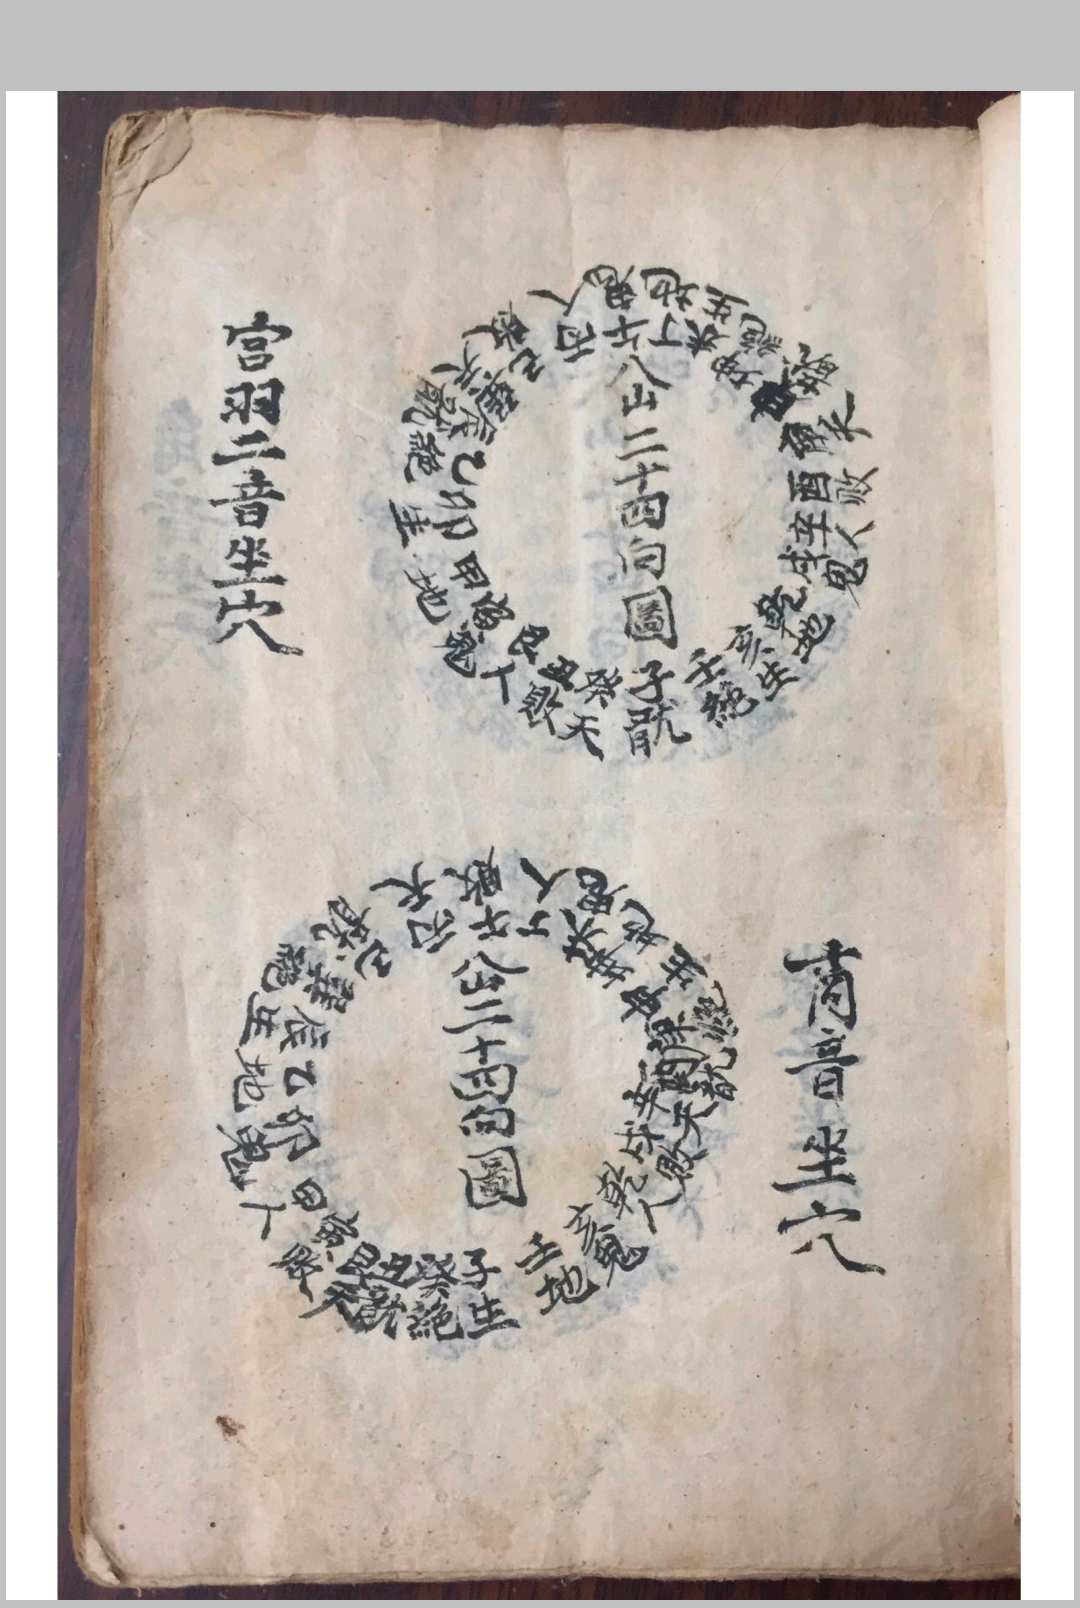 八山二十四向圖
午丁未坤申庚酉辛戌乾亥壬子癸丑艮寅甲卯乙辰巽巳丙
鬼地生絕天敗人鬼地生絕天敗人鬼地生絕天敗人
宮羽二音坐穴
商音坐穴
八山二十四向圖
午丁未坤申庚酉辛戌乾亥壬子癸丑艮寅甲卯乙辰巽巳丙
敗人鬼地生絕天敗人鬼地生絕天敗人鬼地生絕天